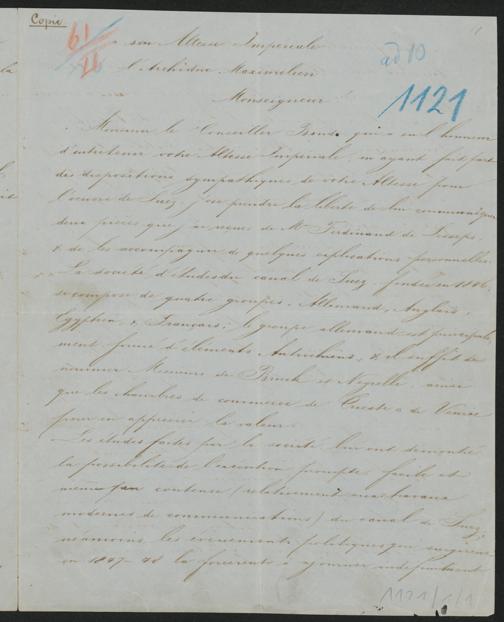 Copie
61/11
ad 10
1121
a son Altesse Imperiale
l'Archiduc Maximilien
Monseigneur
Monsieur le Conseiller qui a eu l'honneur
d'entretenir votre Altesse Imperiale, en ayant fait part
des dispositions sympathiques de votre Altesse pour
l'œuvre de Suez, j'ose prendre la liberté de lui communiquer
deux pièces que j'ai reçues de Mr Ferdinand de Lesseps,
& de les accompagner de quelques explications personnelles.
La société d'études du canal de Suez, fondée en 1846,
se compose de quatre groupes, Allemand, Anglais,
Egyptien, & Français; le groupe allemand est principale
ment formé d'éléments Autrichiens, & il suffit de
nommer Messieurs de Bruck et Negrelli, ainsi
que les chambres de commerce de Trieste & de Venise
pour en apprécier la valeur.
Les études faites par la société lui ont démontré
la possibilité de l'exécution prompte facile et
même peu couteuse (relativement aux travaux
modernes de communications) du canal de Suez,
néanmoins les évènements politiques que surgirent
en 1847-48 la forcèrent à ajourner indéfiniment
1121/1/1